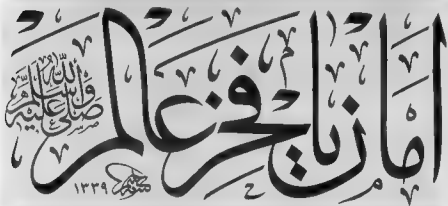 امان يا فخر عالم
صلى الله عليه وسلم
١٣٣٩